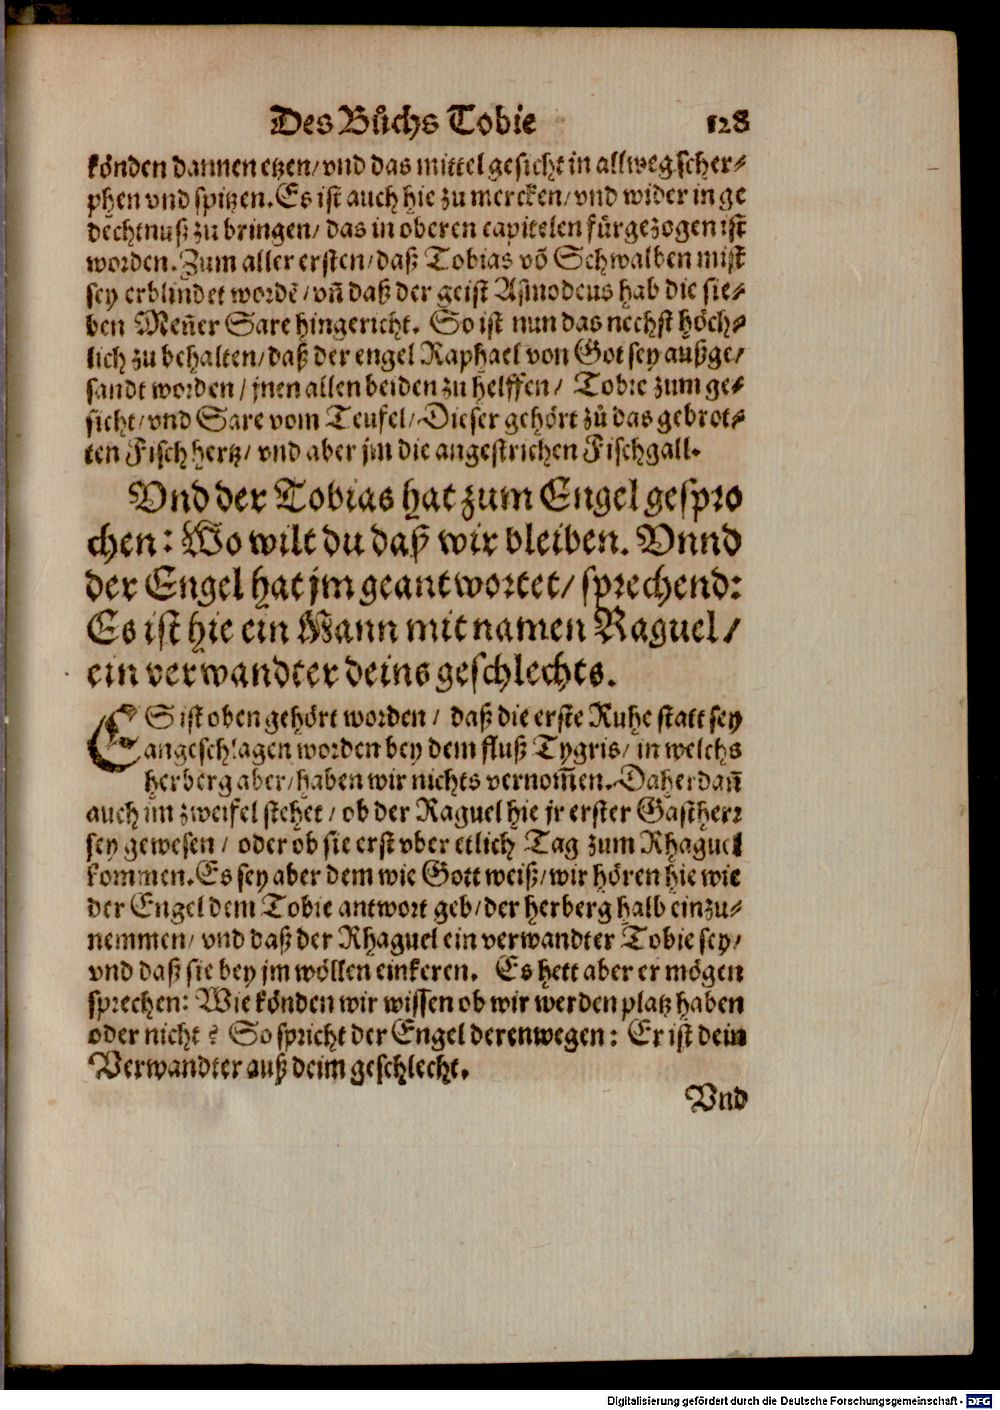 Des Bůchs Tobie 128
könden dannen etzen/ vnd das mittel gesicht in allweg scher⸗
phen vnd spitzen. Es ist auch hie zu mercken/ vnd wider in ge
dechtnuß zu bringen/ das in oberen capitelen fürgezogen ist
worden. Zum aller ersten/ daß Tobias võ Schwalben mist
sey erblindet wordẽ/ vñ daß der geist Asmodeus hab die sie⸗
ben Meñer Sare hingericht. So ist nun das nechst höch⸗
lich zu behalten/ daß der engel Raphael von Got sey außge/
sandt worden/ jnen allen beiden zu helffen/ Tobie zum ge⸗
sicht/ vnd Sare vom Teufel/ Dieser gehört zů das gebrot⸗
ten Fisch hertz/ vnd aber jm die angestrichen Fischgall.
Vnd der Tobias hat zum Engel gespro
chen: Wo wilt du daß wir bleiben. Vnnd
der Engel hat jm geantwortet/ sprechend:
Es ist hie ein Mann mit namen Raguel/
ein verwandter deins geschlechts.
ES ist oben gehört worden/ daß die erste Ruhe statt sey
angeschlagen worden bey dem fluß Tygris/ in welchs
herberg aber/ haben wir nichts vernom̃en. Daher dañ
auch im zweifel stehet/ ob der Raguel hie jr erster Gastherr
sey gewesen/ oder ob sie erst vber etlich Tag zum Rhaguel
kommen. Es sey aber dem wie Gott weiß/ wir hören hie wie
der Engel dem Tobie antwort geb/ der herberg halb einzu⸗
nemmen/ vnd daß der Rhaguel ein verwandter Tobie sey/
vnd daß sie bey jm wöllen einkeren. Es hett aber er mögen
sprechen: Wie könden wir wissen ob wir werden platz haben
oder nicht? So spricht der Engel derenwegen: Er ist dein
Verwandter auß deim geschlecht.
Vnd
Digitalisierung gefördert durch die Deutsche Forschungsgemeinschaft - DFG